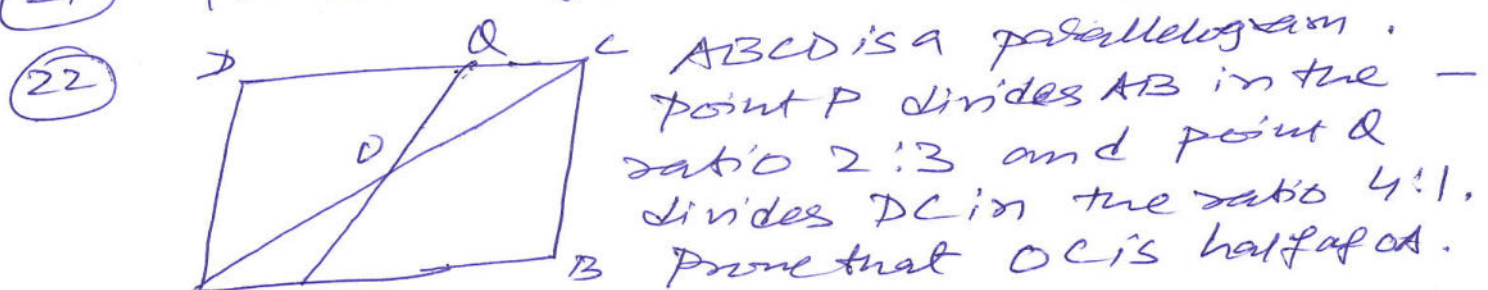 22
D Q C
O
B
ABCD is a parallelogram.
Point P divides AB in the –
ratio 2:3 and point Q
divides DC in the ratio 4:1.
Prove that OC is half of OA.